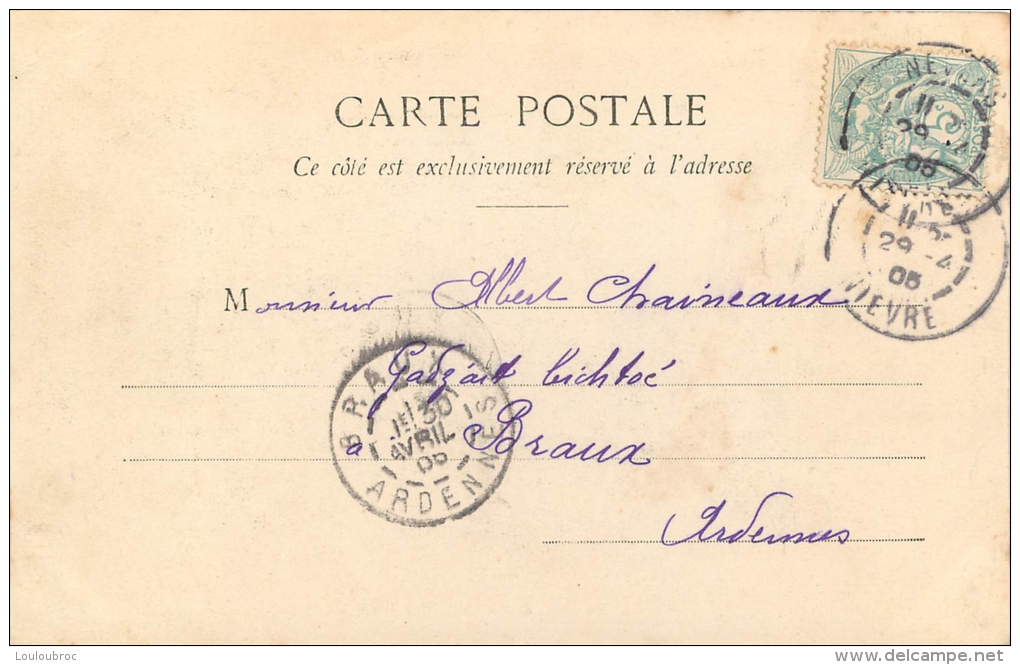 CARTE POSTALE
Ce côté est exclusivement réservé à l'adresse
Monsieur Albert Chaineaux
à Braux
Ardennes
BRAUX
30
AVRIL
05
ARDENNES
NEVERS
29 4
05
NIEVRE
29 4
05
Louloubroc
www.delcampe.net